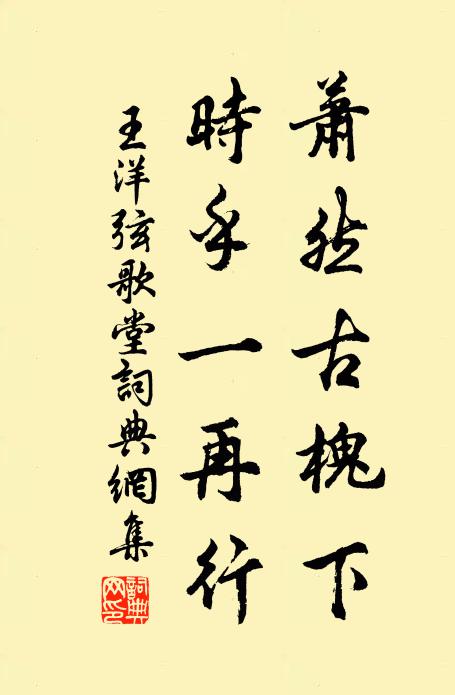 蕭然古槐下
時乎一再行
王洋弦歌堂詞典網集
詞典网印